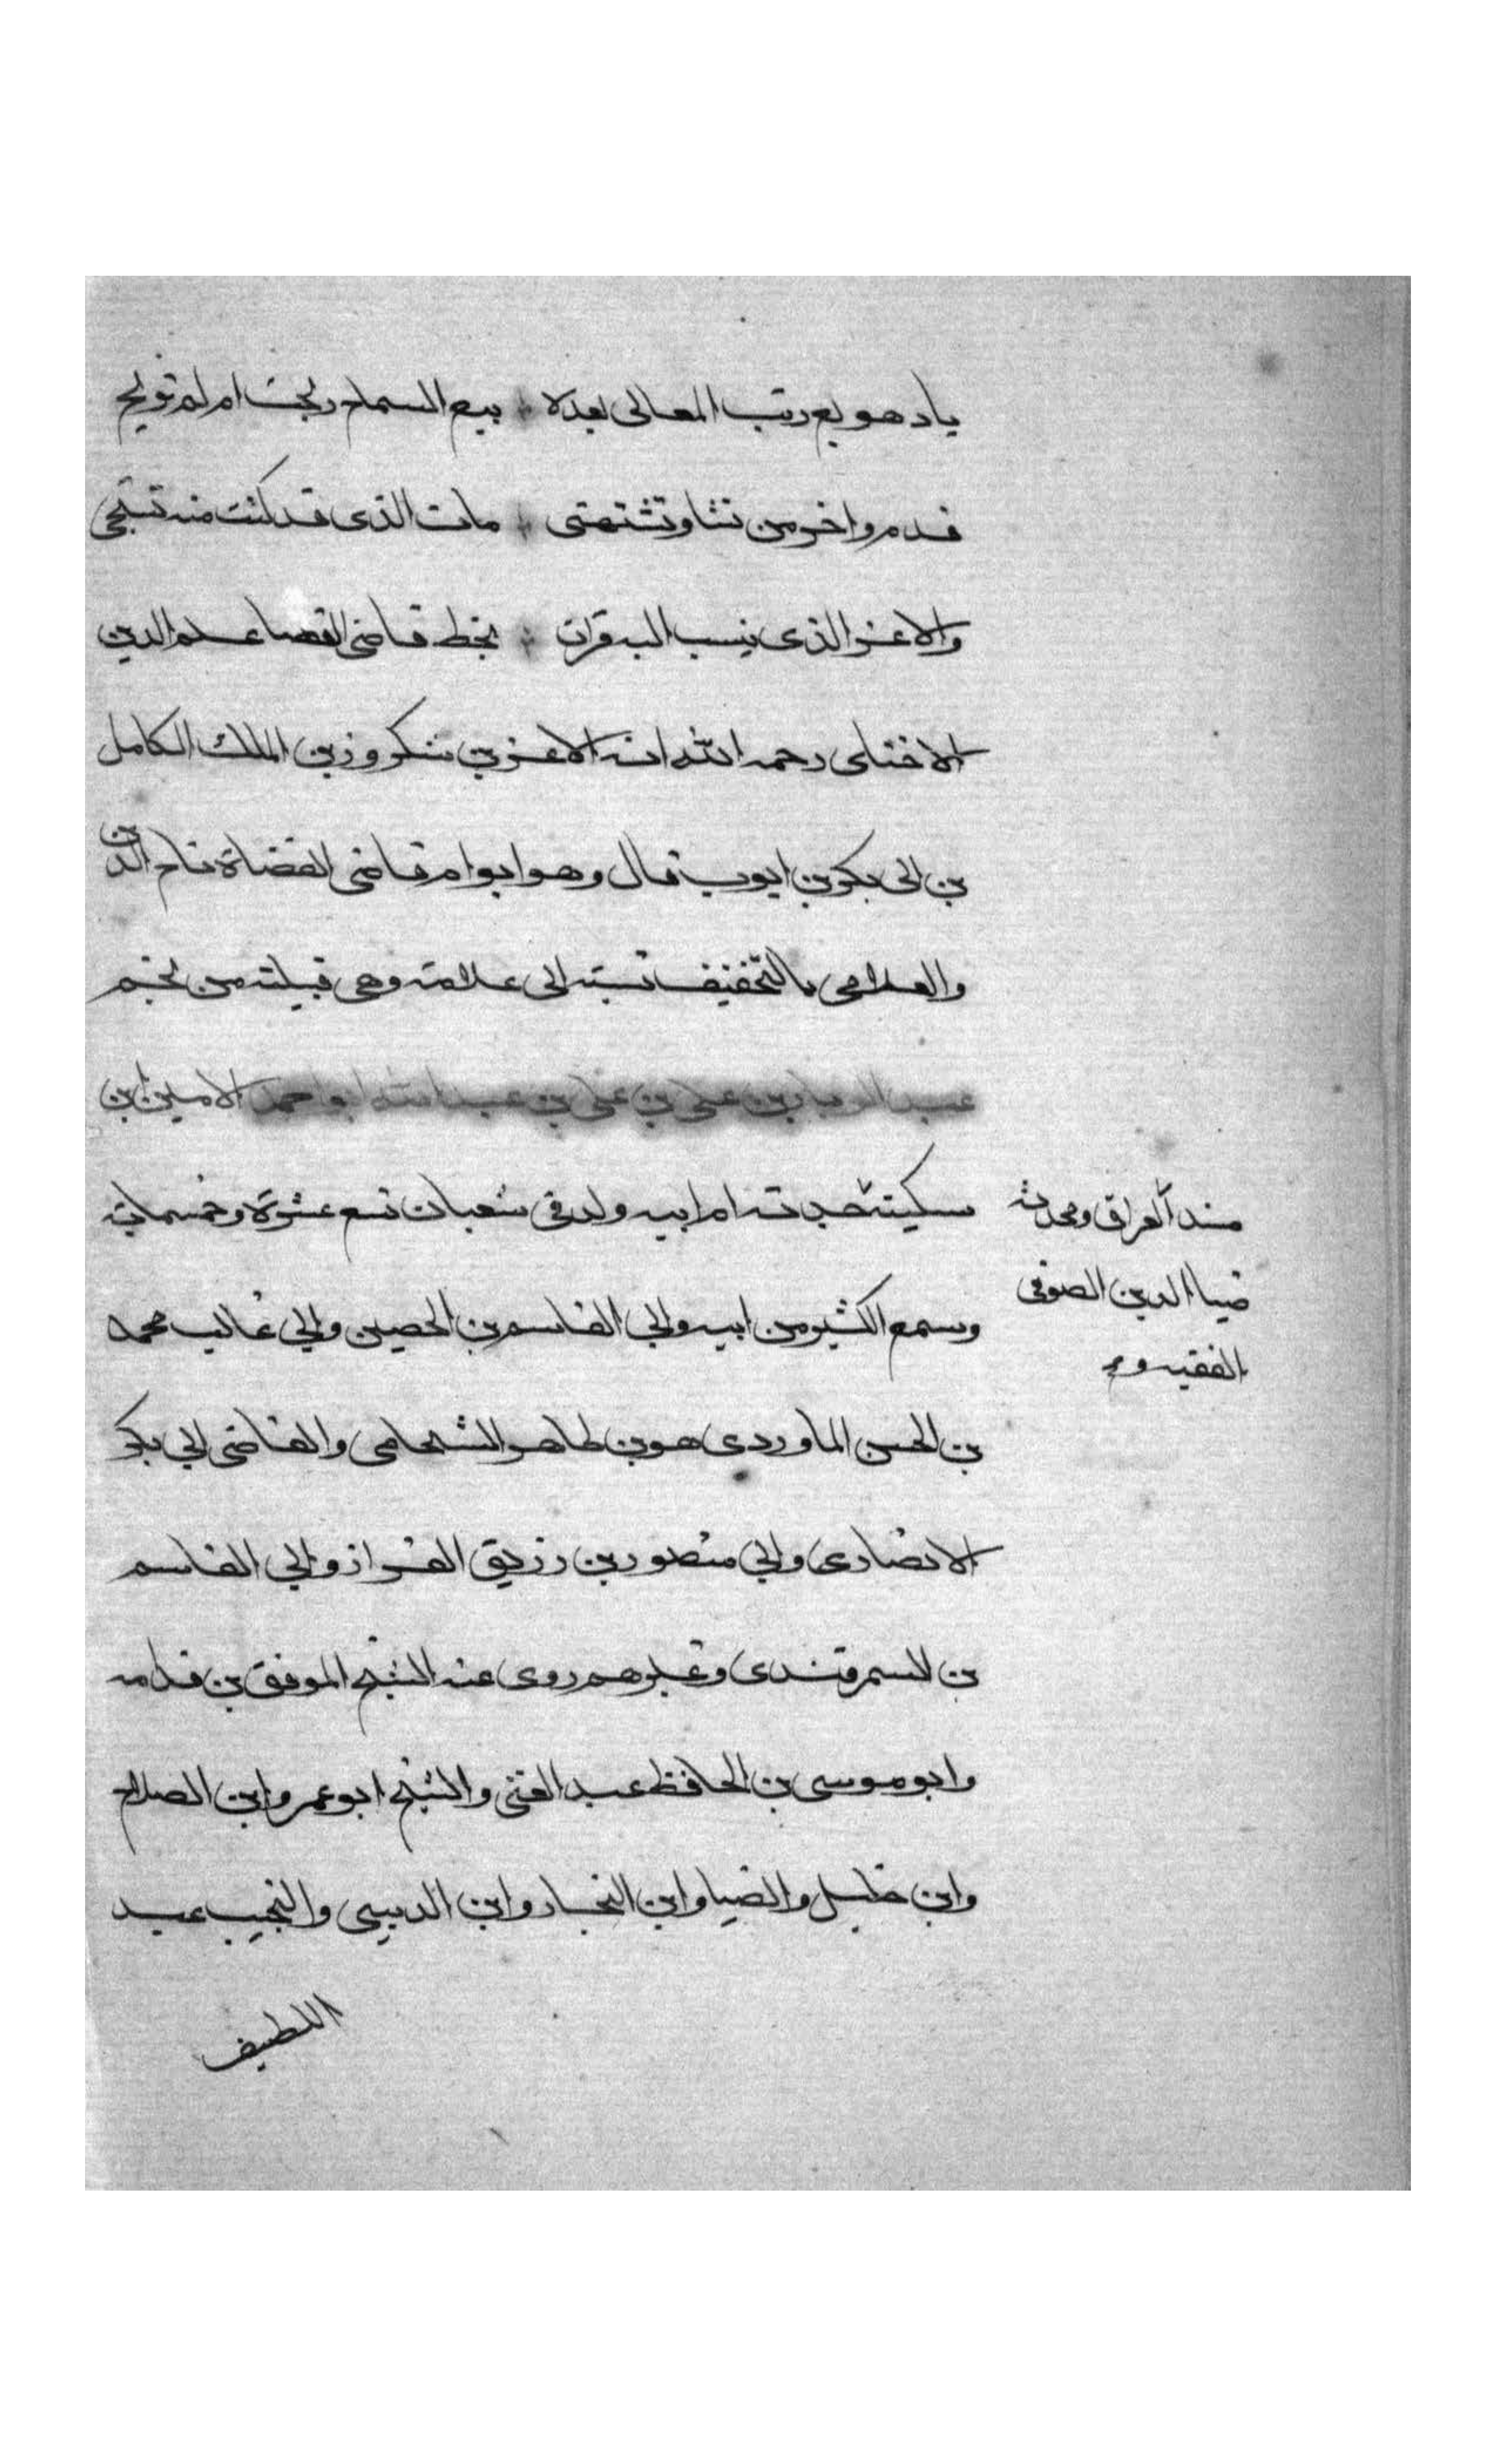 يا دهر بع رتب المعالى بعده ؛ بيع السماح ربحت ام لم تربح
قدم واخر من تشا وتشتهى ؛ مات الذى قد كنت منه تستحى
والاعز الذى ينسب اليه قران ؛ بخط قاضى القضا علم الدين
الاخناى رحمه الله انه الاعز بن شكر وزير الملك الكامل
بن ابى بكر بن ايوب قال وهو ابو ام قاضى القضاة تاج الدين
والعلامى بالتخفيف نسبته الى علامة وهى قبيلة من لخم
عبد الوهاب بن على بن على بن عبد الله ابو احمد الامين ابن
سكينة جدته ام ابيه ولد فى شعبان تسع عشرة وخمسماية
وسمع الكثير من ابيه وابى القاسم بن الحصين وابى غالب محمد
بن الحسن الماوردى هو بن طاهر الشحامى والقاضى ابى بكر
الانصارى وابى منصور بن رزيق القزاز وابى القاسم
بن السمرقندى وغيرهم روى عنه الشيخ الموفق بن قدامه
وابو موسى بن الحافظ عبد الغنى والشيخ ابو عمر وابن الصلاح
وابن خليل والضيا وابن النجار وابن الدبيثى والنجيب عبد
اللطيف
مسند العراق ومحدثه
ضيا الدين الصوفى
الفقيه